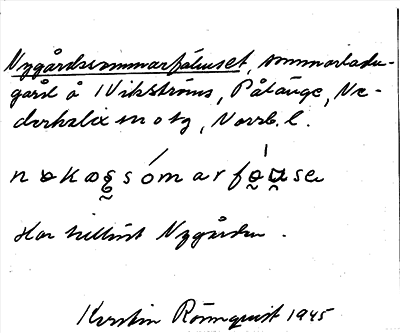 Nygårdssommarfähuset, sommarladu-
gård å 1 Vikströms, Pålänge, Ne-
derkalix sn o tg, Norrb. l.
Har tillhört Nygården.
Kerstin Rönnquist 1945